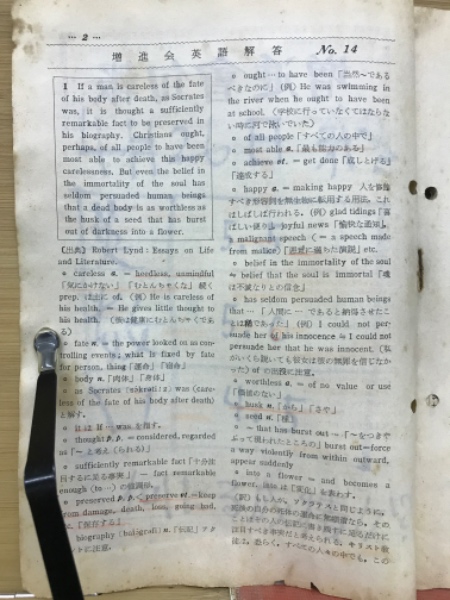 … 2 …
増進会英語解答 No. 14
1 If a man is careless of the fate
of his body after death, as Socrates
was, it is thought a sufficiently
remarkable fact to be preserved in
his biography. Christians ought,
perhaps, of all people to have been
most able to achieve this happy
carelessness. But even the belief in
the immortality of the soul has
seldom persuaded human beings
that a dead body is as worthless as
the husk of a seed that has burst
out of darkness into a flower.
(出典) Robert Lynd: Essays on Life
and Literature.
o careless a. = heedless, unmindful
「気にかけない」「むとんちゃくな」続く
prep. は主に of. (例) He is careless of
his health. = He gives little thought to
his health. (彼は健康にむとんちゃくであ
る)
o fate n. = the power looked on as con-
trolling events; what is fixed by fate
for person, thing「運命」「宿命」
o body n.「肉体」「身体」
o as Socrates was (care-
less of the fate of his body after death)
と解す。
o it は If … was を指す。
o thought p.p. = considered, regarded
as「~と考え(られる)」
o sufficiently remarkable fact
= fact remarkable
enough (to …)
o preserved p.p. < preserve vt. = keep
from damage, death, loss, going bad,
「保存する」
biography n.「伝記」
に注意。
o ought … to have been「当然~である
べきなのに」(例) He was swimming in
the river when he ought to have been
at school. (学校に行っていなくてはならな
い時に河で泳いでいた)
o of all people「すべての人の中で」
o most able a.「最も能力のある」
o achieve vt. = get done「成しとげる」
「達成する」
o happy a. = making happy 人を修飾
すべき形容詞を無生物に転用する用法。これ
はしばしば行われる。(例) glad tidings「喜
ばしい便り」 joyful news「愉快な通知」
a malignant speech (= a speech made
from malice)「悪意に満ちた演説」etc.
o belief in the immortality of the soul
= belief that the soul is immortal「魂
は不滅なりとの信念」
o has seldom persuaded human beings
that …「人間に…であると納得させたこ
とは稀であった」(例) I could not per-
suade her of his innocence = I could not
persuade her that he was innocent. (私
がいくら説いても彼女は彼の無罪を信じなか
った) of の用法に注意。
o worthless a. = of no value or use
「価値のない」
o husk n.「から」「さや」
o seed n.「種」
o ~ that has burst out ~「~をつきや
ぶって現われたところの」 burst out = force
a way violently from within outward,
appear suddenly
o into a flower = and becomes a
flower, into は「変化」を表わす。
(訳) もし人が、ソクラテスと同じように、
死後の自分の死体の運命に無頓着なら、その
ことはその人の伝記に書き残すに足るだけに
注目すべき事実だと考えられる。キリスト教
徒は、恐らく、すべての人々の中でも、この